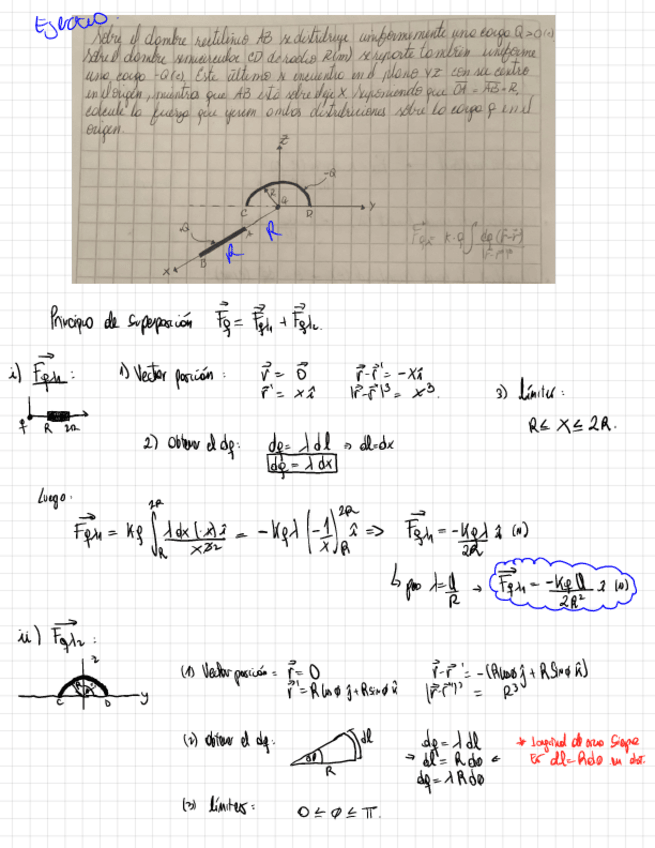 Ejercicio
Sobre el alambre rectilíneo AB se distribuye uniformemente una carga Q>0(c)
Sobre el alambre semicircular CD de radio R(m) se reparte también uniforme
una carga -Q(c). Este último se encuentra en el plano YZ con su centro
en el origen, mientras que AB está sobre eje X. Suponiendo que OA = AB = R,
calcule la fuerza que ejercen ambas distribuciones sobre la carga q en el
origen.
Z
-Q
R
C
q
D
Y
Q
A
R
R
B
X
F = k·q ∫ dq (r-r') / |r-r'|³
Principio de superposición F⃗q = F⃗qλ1 + F⃗qλ2.
i) F⃗qλ1 : 1) Vector posición : r⃗ = 0⃗ r⃗-r⃗' = -xî
r⃗' = xî |r⃗-r⃗'|³ = x³.
3) límites :
q R 2R
R ≤ X ≤ 2R.
2) Obtener el dq: dq = λ dl ⇒ dl=dx
dq = λ dx
Luego.
F⃗qλ1 = kq ∫ᴿ²ᴿ λdx(-x)î / x³² = -kqλ (-1/x)ᴿ²ᴿ î ⇒ F⃗qλ1 = -kqλ/2R î (N)
↳ pero λ = Q/R → F⃗qλ1 = -kqQ/2R² î (N)
ii) F⃗qλ2 :
z
C D y
(1) Vector posición = r⃗ = 0 r⃗-r⃗' = -(Rcosφ ĵ + RSinφ k̂)
r⃗' = Rcosφ ĵ + RSinφ k̂ |r⃗-r⃗'|³ = R³
(2) Obtener el dq: dφ R dl dq = λ dl
→ dl = R dφ ←
dq = λ R dφ
* longitud de arco siempre
es dl=Rdφ
(3) límites: 0 ≤ φ ≤ π.